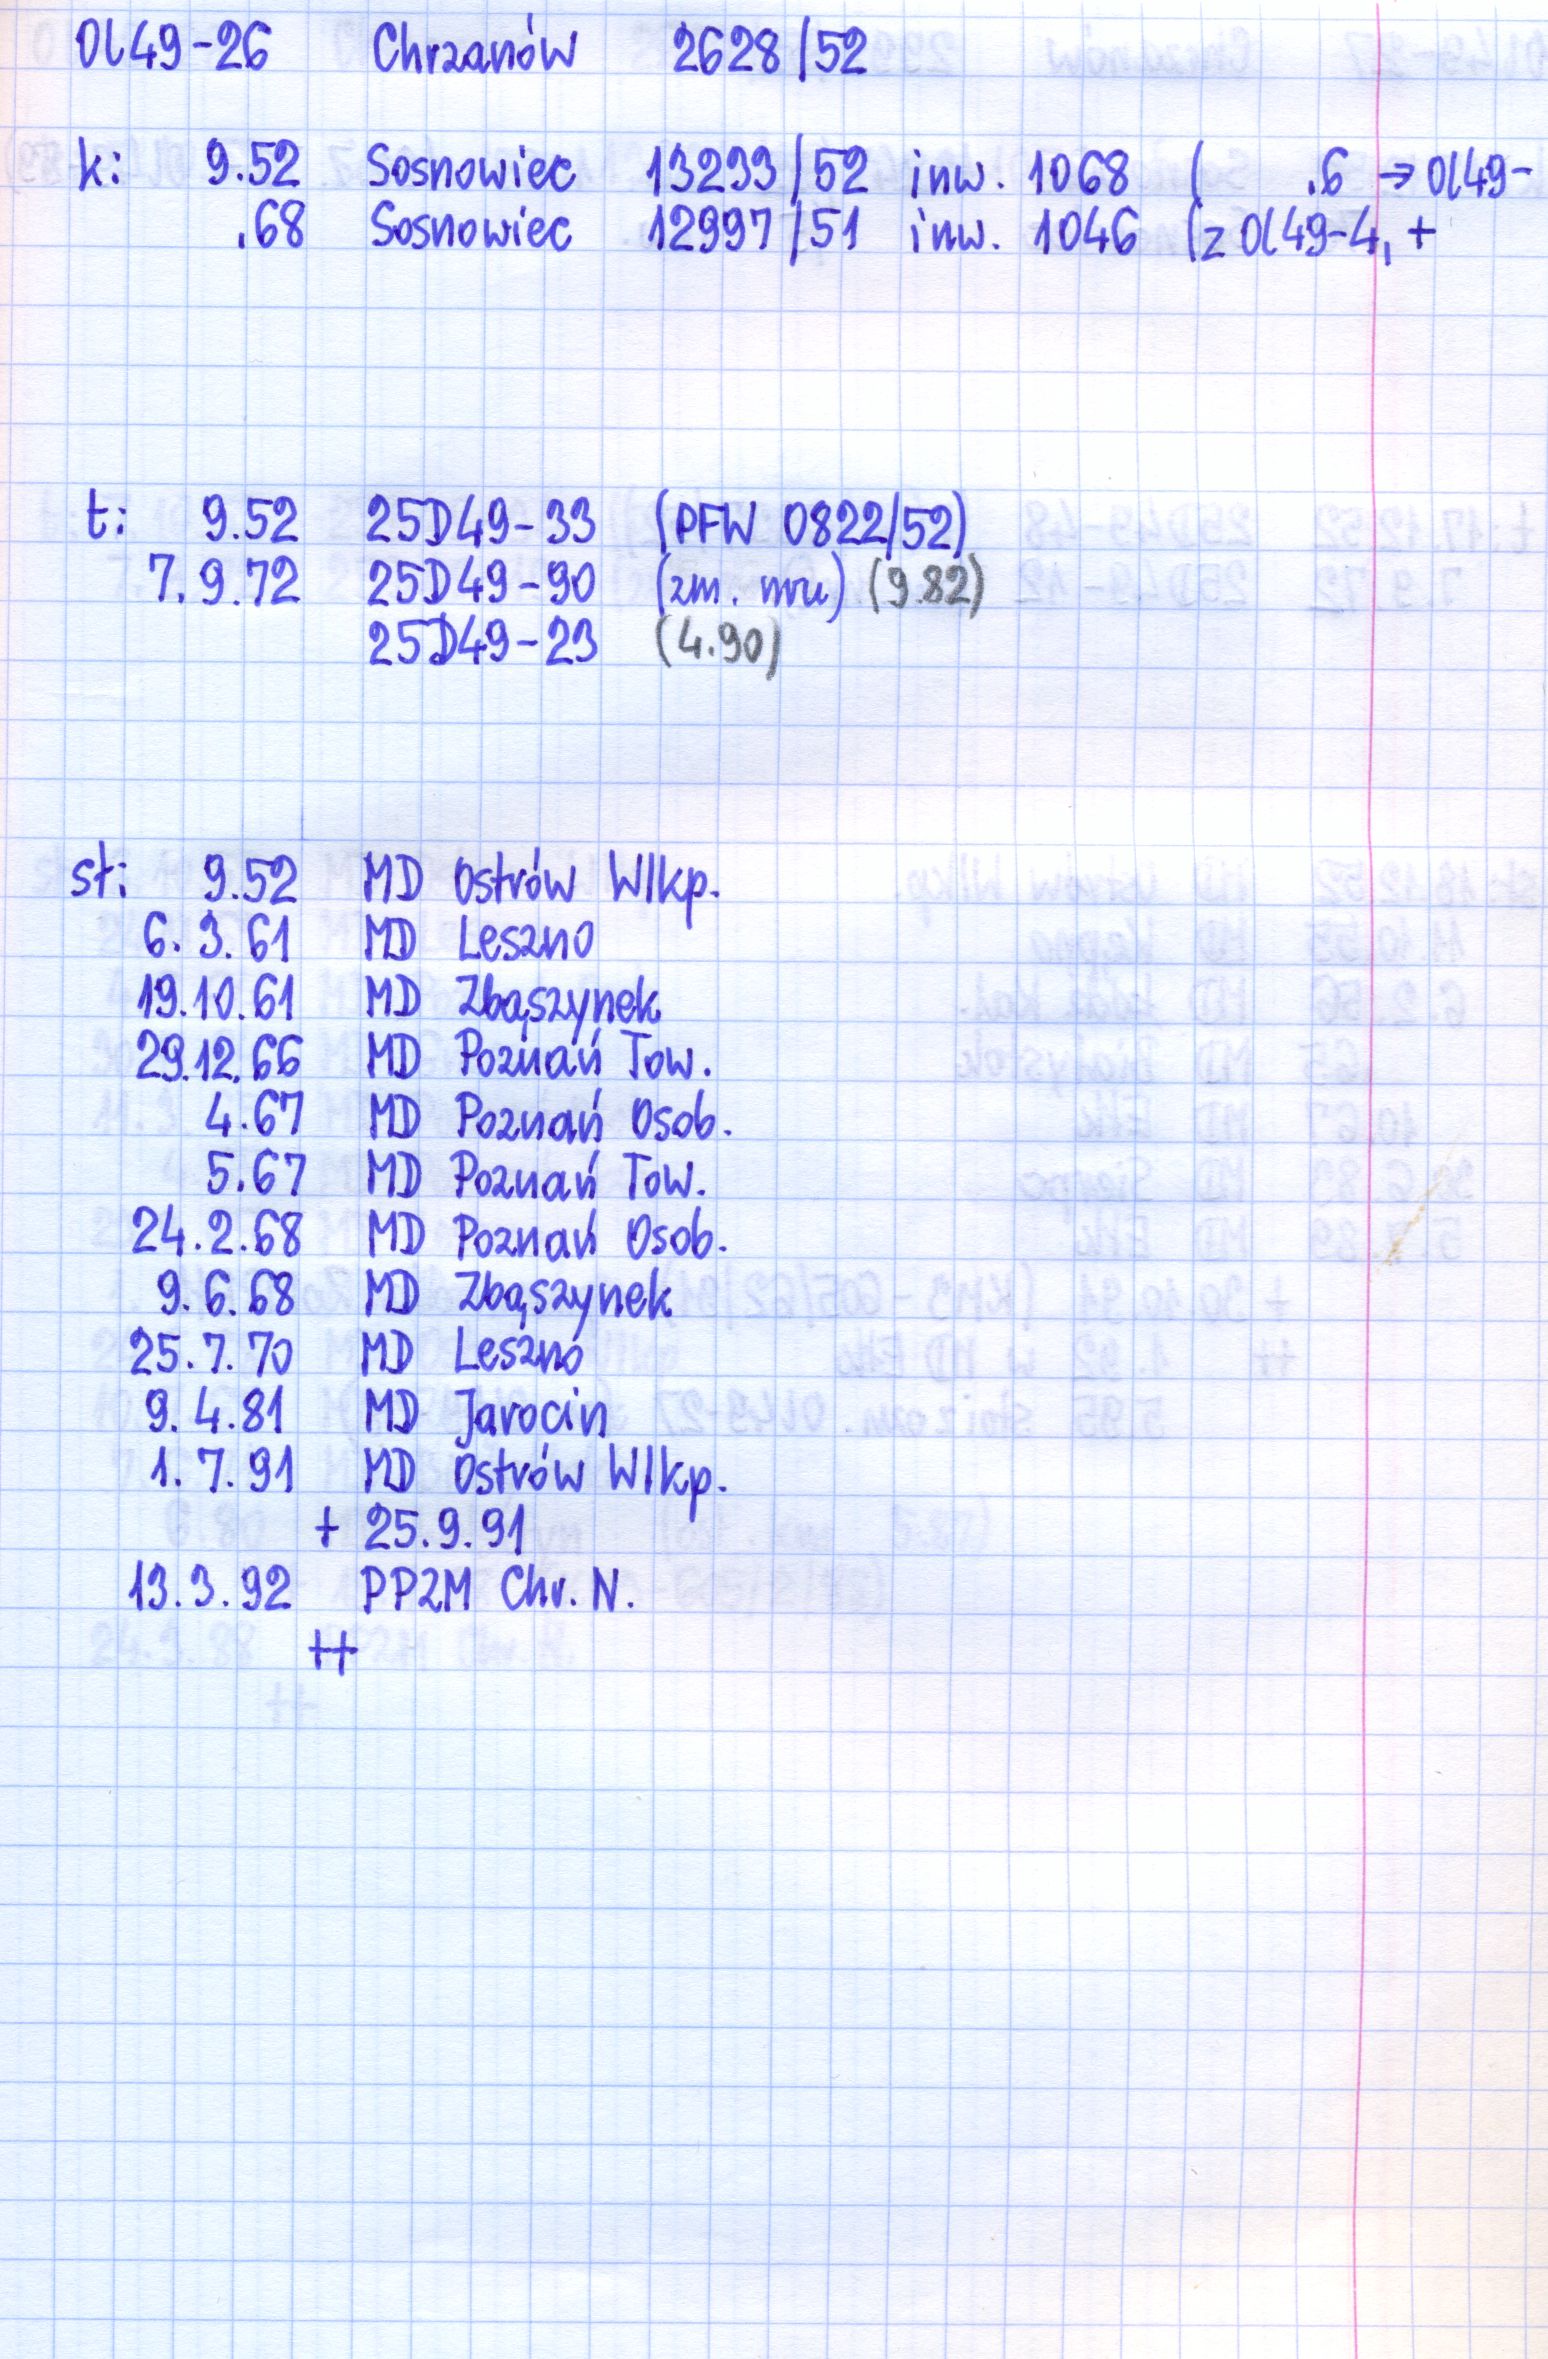 Ol49-26 Chrzanów 2628/52
k: 9.52 Sosnowiec 13299/52 inw. 1068 ( .6 → Ol49-
.68 Sosnowiec 12997/51 inw. 1046 (z Ol49-4, +
t: 9.52 25D49-33 (PFW 0822/52)
7.9.72 25D49-90 (zm. nru) (9.82)
25D49-23 (4.90)
st: 9.52 MD Ostrów Wlkp.
6.3.61 MD Leszno
19.10.61 MD Zbąszynek
29.12.66 MD Poznań Tow.
4.67 MD Poznań Osob.
5.67 MD Poznań Tow.
24.2.68 MD Poznań Osob.
9.6.68 MD Zbąszynek
25.7.70 MD Leszno
9.4.81 MD Jarocin
1.7.91 MD Ostrów Wlkp.
+ 25.9.91
13.3.92 PPZM Chr. N.
++